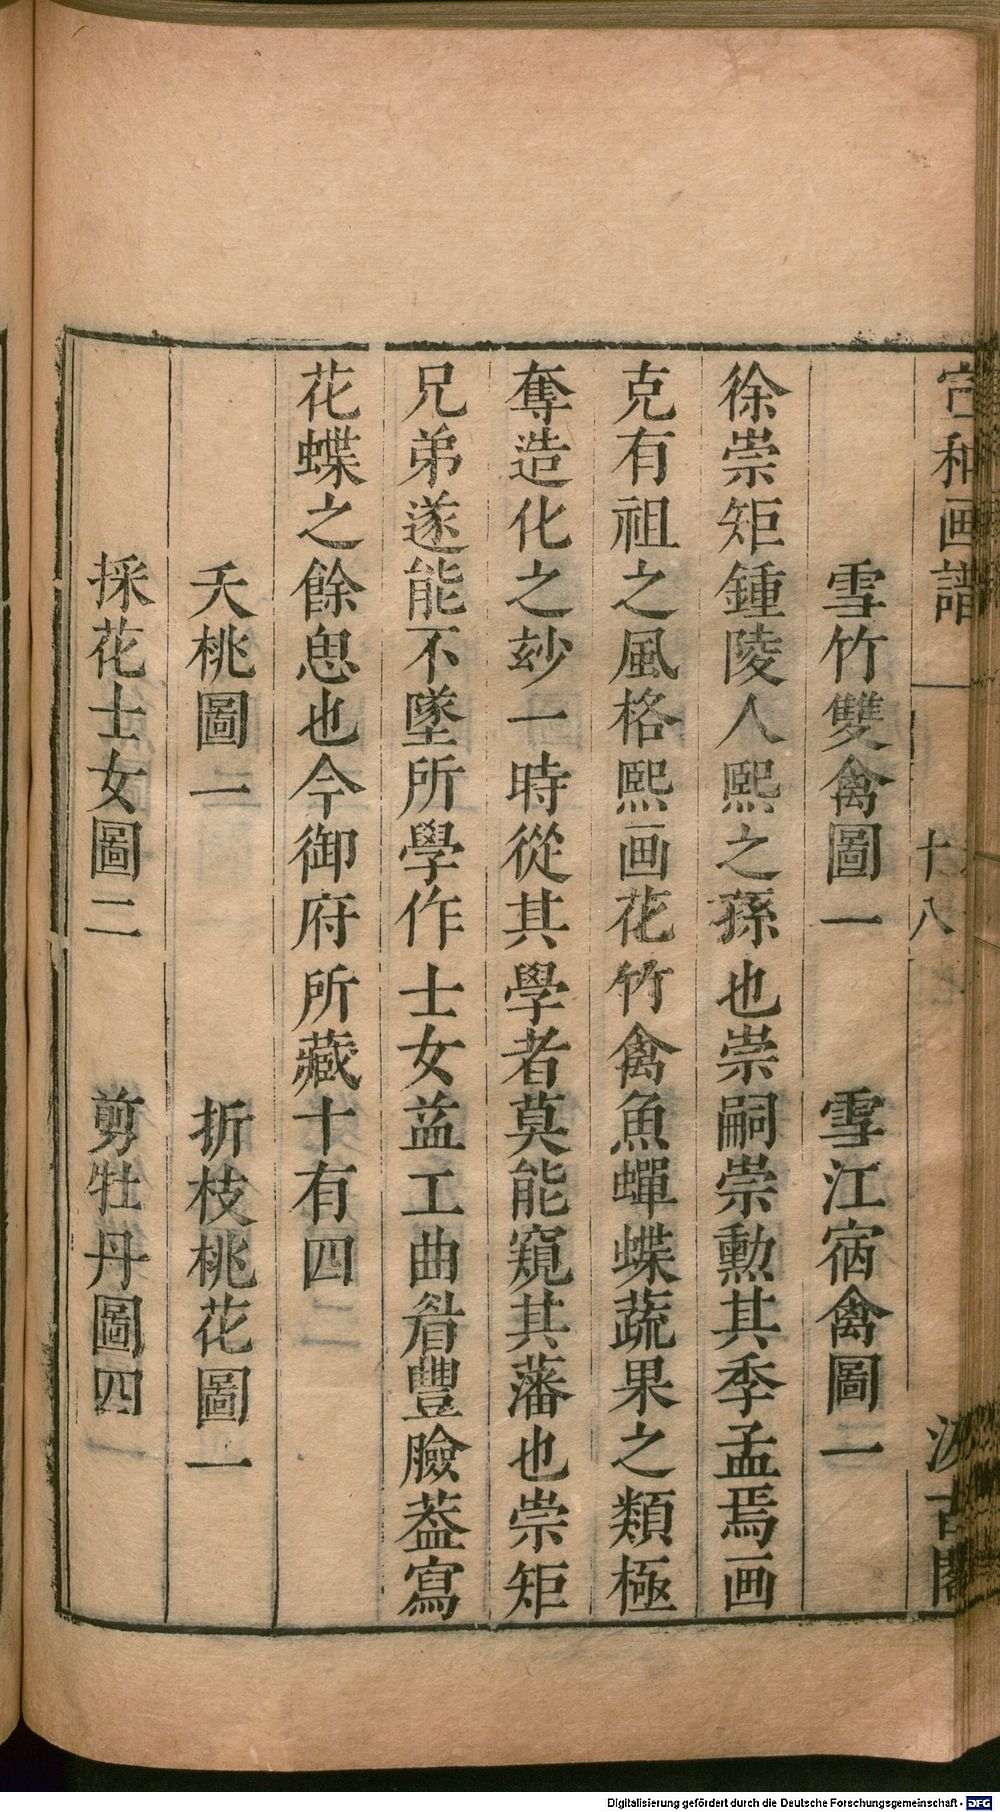 宣和画譜 十八 汲古閣
雪竹雙禽圖一 雪江宿禽圖一
徐崇矩鍾陵人熙之孫也崇嗣崇勲其季孟焉画
克有祖之風格熙画花竹禽魚蟬蝶蔬果之類極
奪造化之玅一時從其學者莫能窺其藩也崇矩
兄弟遂能不墜所學作士女益工曲眉豐臉葢寫
花蝶之餘思也今御府所藏十有四
夭桃圖一 折枝桃花圖一
採花士女圖二 剪牡丹圖四
Digitalisierung gefördert durch die Deutsche Forschungsgemeinschaft - DFG